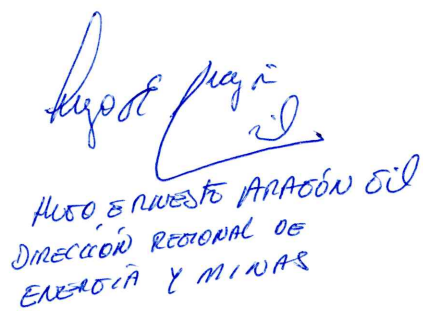 Hugo E Aragón
Gil
HUGO ERNESTO ARAGÓN Gil
DIRECCIÓN REGIONAL DE
ENERGÍA Y MINAS